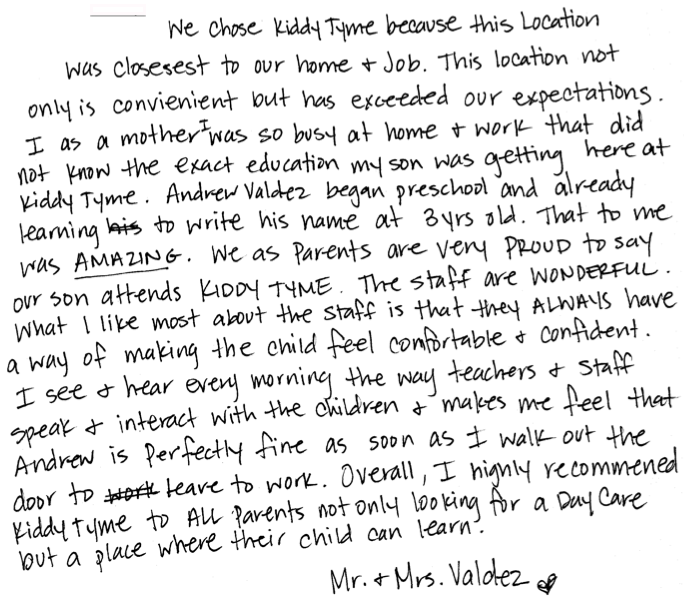 We chose Kiddy Tyme because this Location
was closesest to our home + Job. This location not
only is convienient but has exceeded our expectations.
I as a mother I was so busy at home + work that did
not know the exact education my son was getting here at
Kiddy Tyme. Andrew Valdez began preschool and already
learning his to write his name at 3yrs old. That to me
was AMAZING. We as Parents are very PROUD to say
our son attends KIDDY TYME. The staff are WONDERFUL.
What I like most about the staff is that they ALWAYS have
a way of making the child feel comfortable + confident.
I see + hear every morning the way teachers + staff
speak + interact with the children + makes me feel that
Andrew is perfectly fine as soon as I walk out the
door to work leave to work. Overall, I highly recommened
Kiddy Tyme to ALL Parents not only looking for a Day Care
but a place where their child can learn.
Mr. + Mrs. Valdez